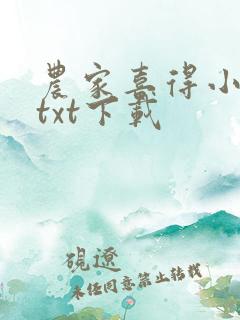 農家喜得小
txt下載
硯遼
未任同意禁止轉載